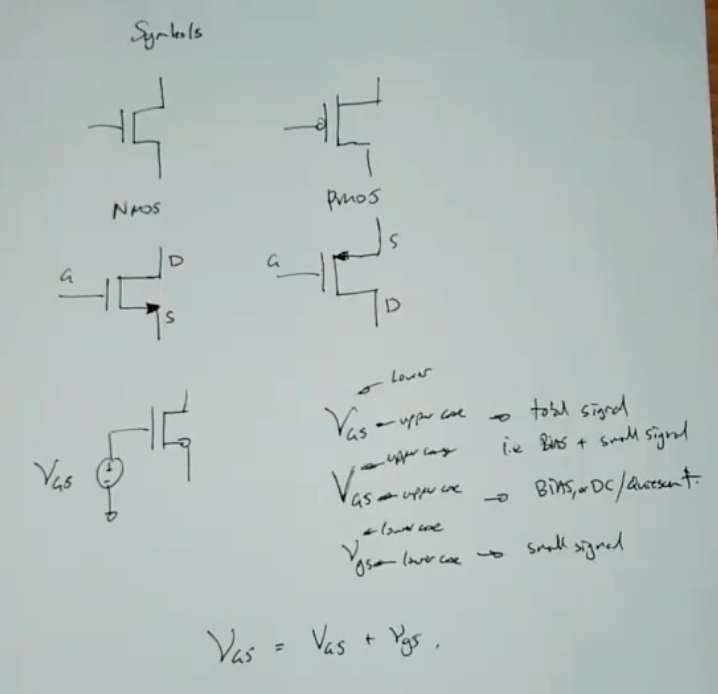 Symbols
NMOS
PMOS
G
D
S
G
S
D
Lower
VGS upper case → total signal
i.e Bias + small signal
upper case
VGS upper case → BIAS, or DC/Quiescent.
lower case
vgs lower case → small signal
VGS
+
-
VGS = VGS + vgs.